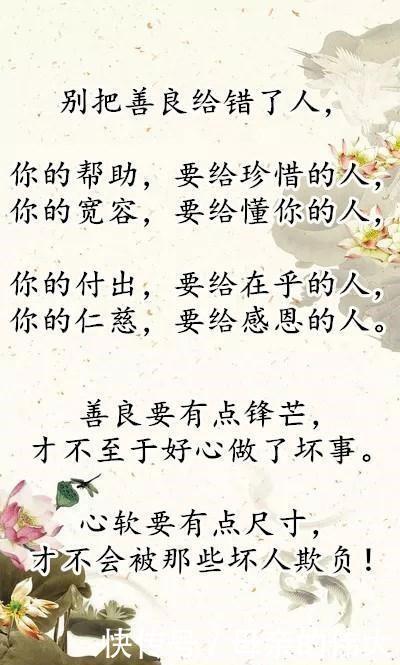 别把善良给错了人，
你的帮助，要给珍惜的人，
你的宽容，要给懂你的人，
你的付出，要给在乎的人，
你的仁慈，要给感恩的人。
善良要有点锋芒，
才不至于好心做了坏事。
心软要有点尺寸，
才不会被那些坏人欺负！